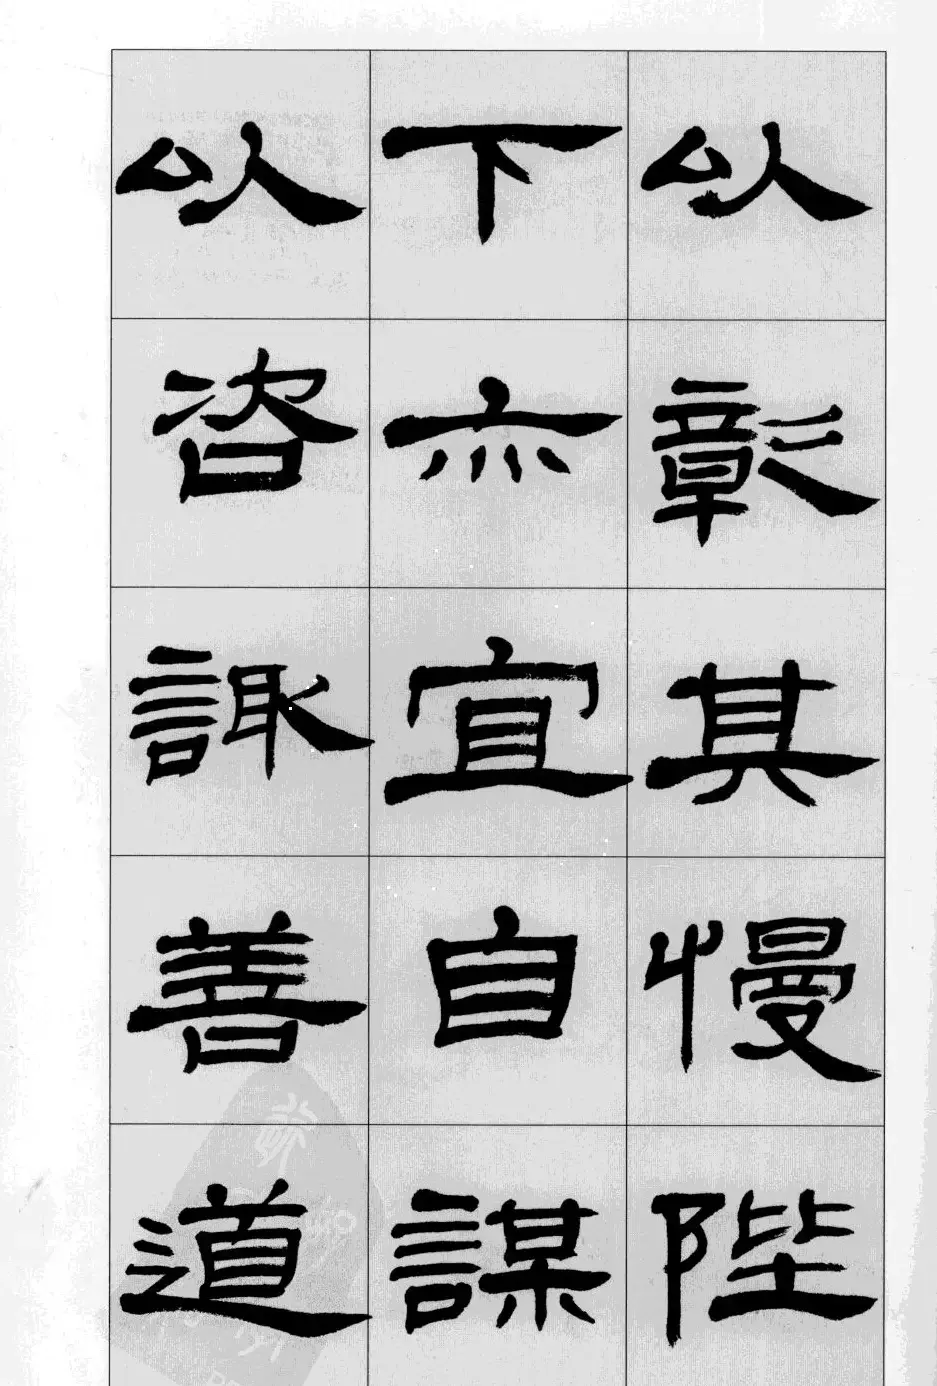 以彰其慢陛
下亦宜自謀
以咨諏善道